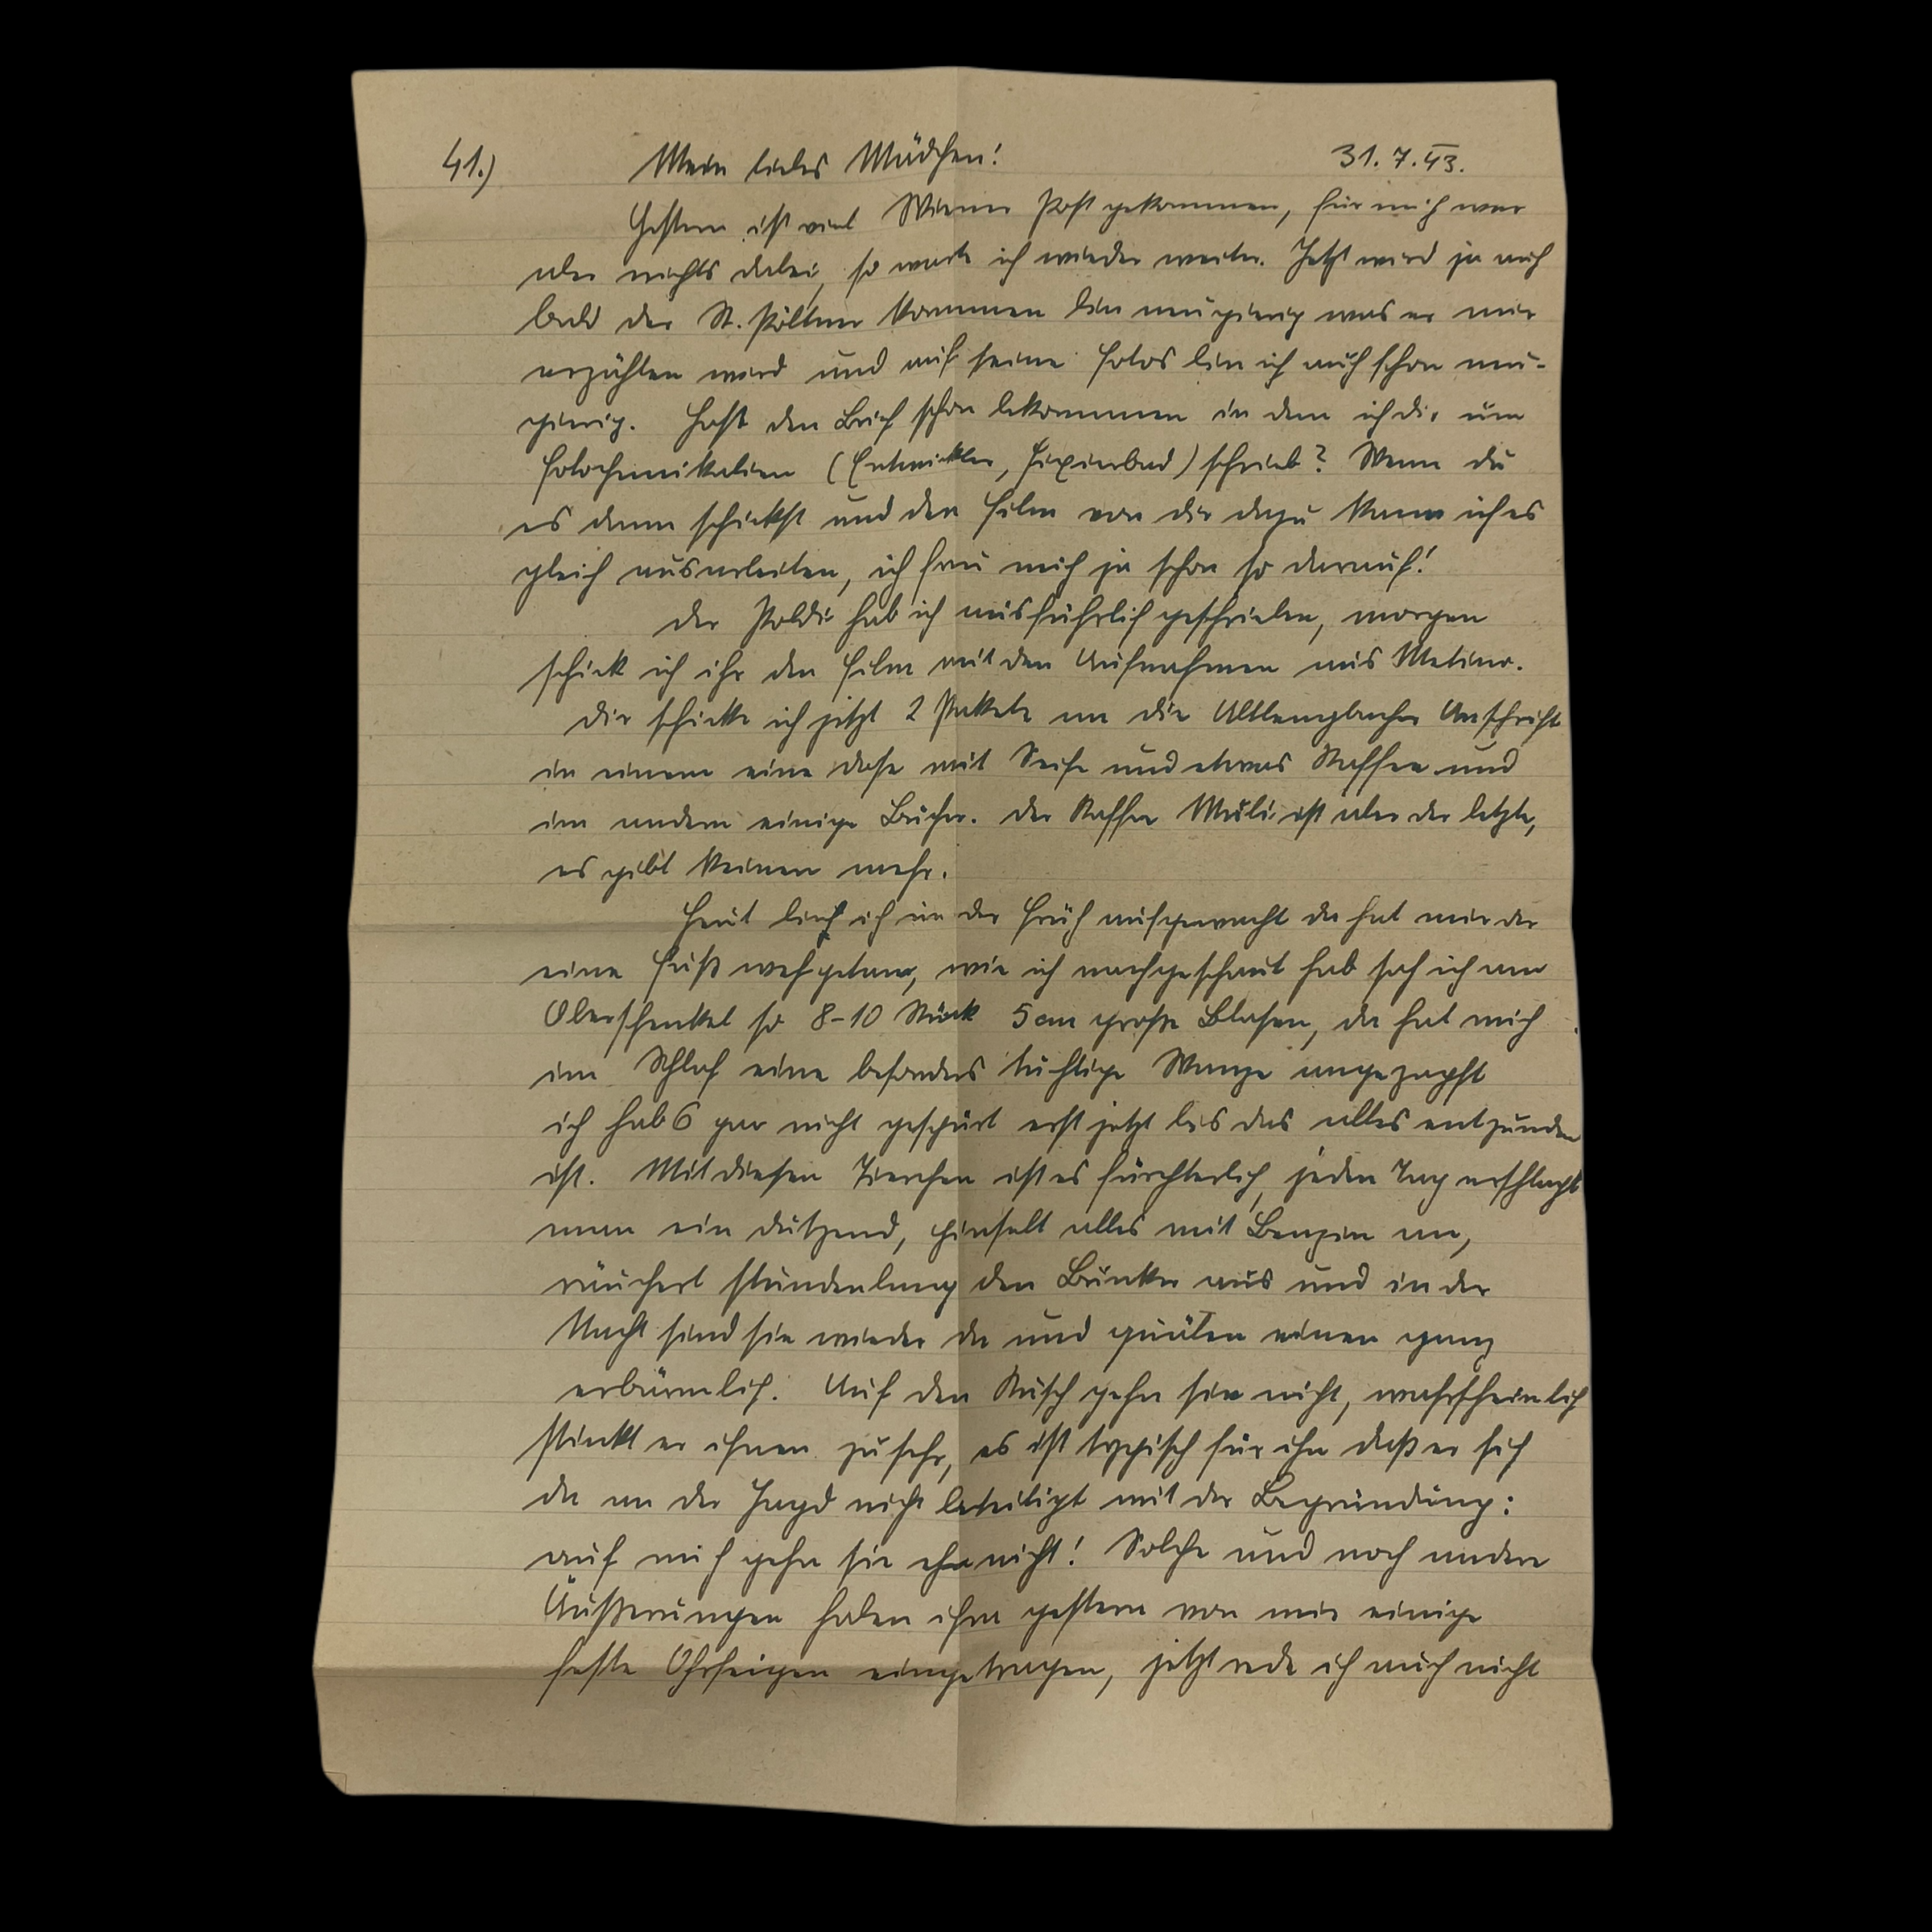 41.) Mein liebes Mädchen! 31.7.43.
Gestern ist viel Wiener Post gekommen, für mich war
aber nichts dabei, so warte ich wieder weiter. Jetzt wird ja auch
bald der St. Pöltner kommen bin neugierig was er mir
erzählen wird und auf seine Fotos bin ich auch schon neu-
gierig. Hast den Brief schon bekommen in dem ich dir um
Fotochemikalien (Entwickler, Fixierbad) schrieb? Wenn du
es dann schickst und den Film von dir dazu kann ich es
gleich ausarbeiten, ich freu mich ja schon so darauf!
Der Poldi hab ich ausführlich geschrieben, morgen
schick ich ihr den Film mit den Aufnahmen aus
Dir schicke ich jetzt 2 Pakete an die Altlengbacher Anschrift
in einem eine Dose mit Seife und etwas Kaffee und
im andern einige Bücher. Der Kaffee ist aber der letzte,
es gibt keinen mehr.
Heut bin ich in der Früh aufgewacht da hat mir der
eine Fuß wehgetan, wie ich nachgeschaut hab sah ich am
Oberschenkel so 8-10 Stück 5cm große Blasen, da hat mich
im Schlaf eine besonders tüchtige Wanze angezapft
ich hab's gar nicht gespürt erst jetzt bis das alles entzunden
ist. Mit diesen Tierchen ist es fürchterlich, jeden Tag erschlagt
man ein Dutzend, pinselt alles mit Benzin an,
räuchert stundenlang den Bunker aus und in der
Nacht sind sie wieder da und quälen einen ganz
erbärmlich. Auf den Rusch gehn sie nicht, wahrscheinlich
stinkt er ihnen zu sehr, es ist typisch für ihn daß er sich
da an der Jagd nicht beteiligt mit der Begründung:
auf mich gehn sie eh nicht! Solche und noch andere
Äußerungen haben ihm gestern von mir einige
feste Ohrfeigen eingetragen, jetzt rede ich auch nicht